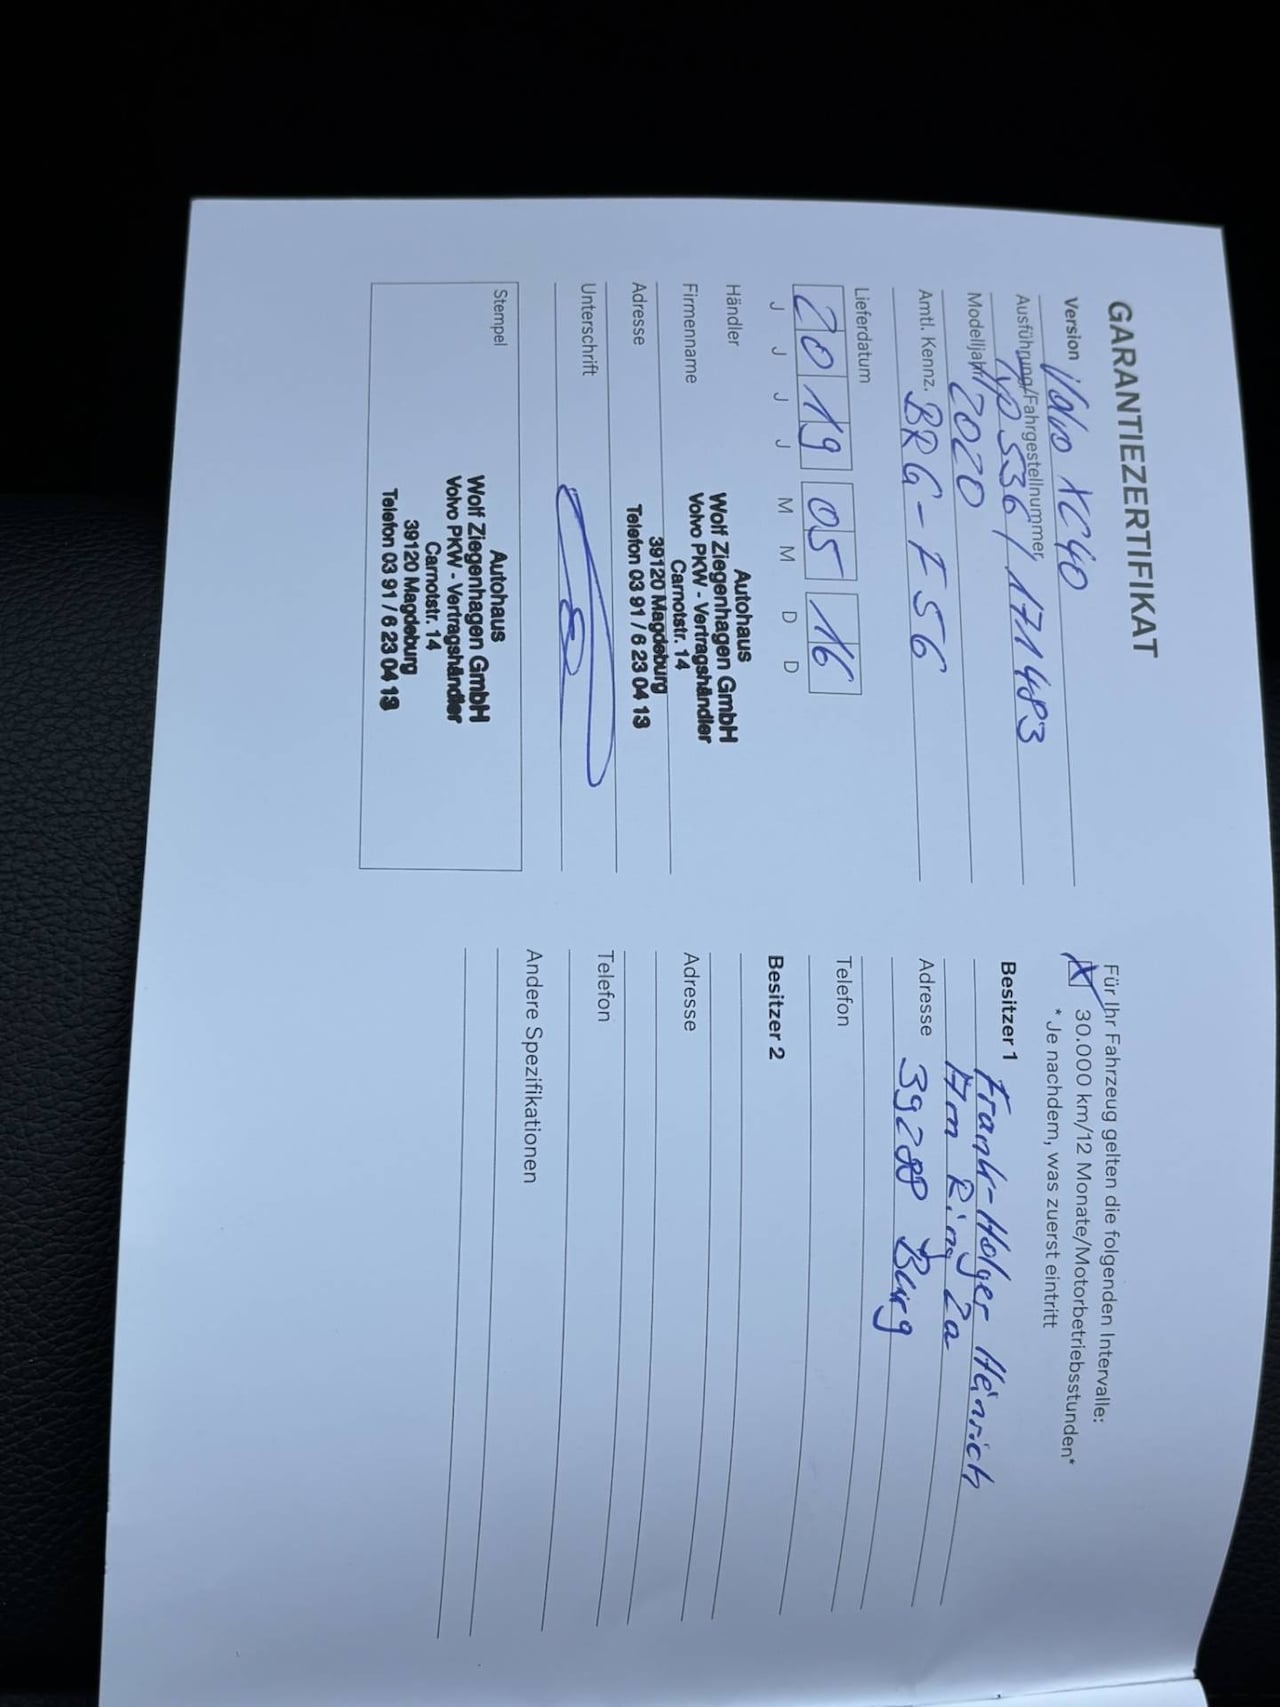 GARANTIEZERTIFIKAT
Version Volvo XC40
Ausführung/Fahrgestellnummer
Typ 536 / 171483
Modelljahr 2020
Amtl. Kennz. BRG-F 56
Lieferdatum
2019 05 16
J J J J M M D D
Händler
Firmenname
Adresse
Autohaus
Wolf Ziegenhagen GmbH
Volvo PKW - Vertragshändler
Carnotstr. 14
39120 Magdeburg
Telefon 03 91 / 6 23 04 13
Unterschrift
Stempel
Autohaus
Wolf Ziegenhagen GmbH
Volvo PKW - Vertragshändler
Carnotstr. 14
39120 Magdeburg
Telefon 03 91 / 6 23 04 13
Für Ihr Fahrzeug gelten die folgenden Intervalle:
X 30.000 km/12 Monate/Motorbetriebsstunden*
* Je nachdem, was zuerst eintritt
Besitzer 1
Frank-Holger Heinrich
Am Ring 2a
Adresse 39288 Burg
Telefon
Besitzer 2
Adresse
Telefon
Andere Spezifikationen